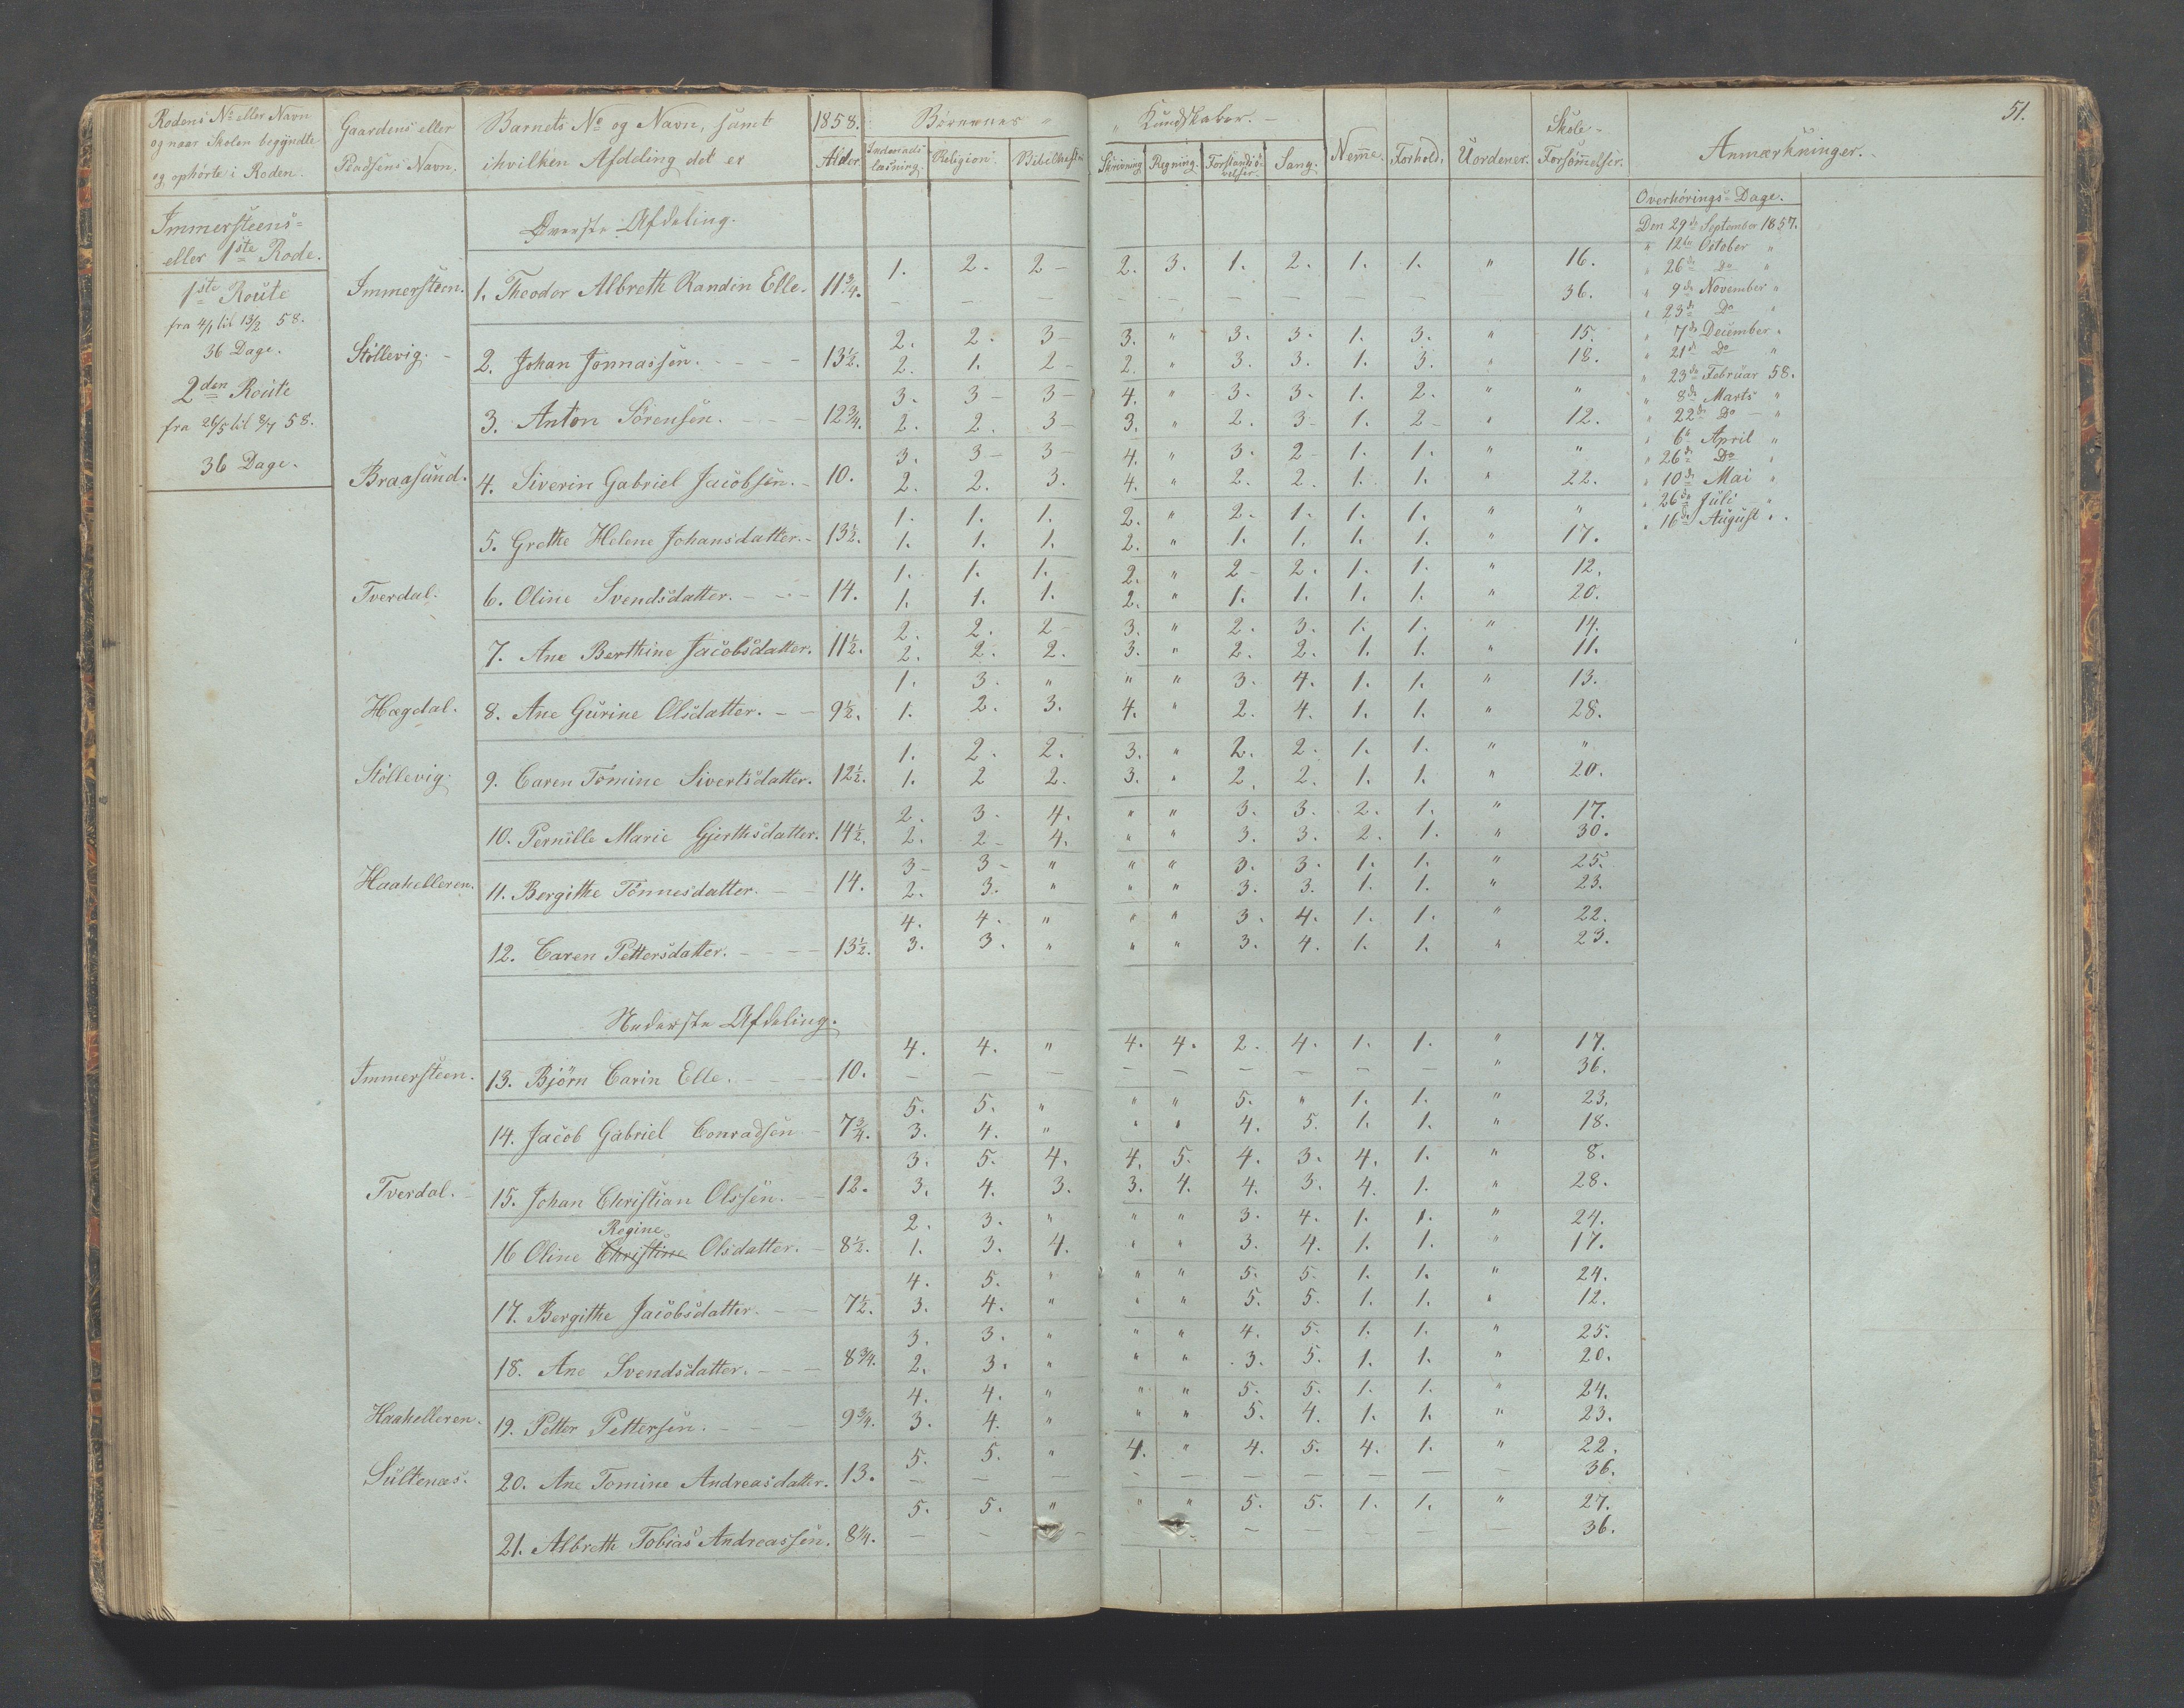 51.
Rodens No eller Navn
og naar Skolen begyndte
og ophørte i Roden.
Gaardens eller
Pladsens Navn.
Barnets No og Navn, samt
ihvilken Afdeling det er
1858.
Alder
Børnenes "
" Kundskaber. -
Indenads-
læsning.
Religion.
Bibelhist.
Skrivning.
Regning.
Forstandsø-
velser.
Sang.
Nemme.
Forhold.
Uordener.
Skole-
Forsømmelser.
Anmærkninger.
Immersteens-
eller 1ste Rode.
1ste Route
fra 4/1 til 13/2 58.
36 Dage.
2den Route
fra 26/5 til 8/7 58.
36 Dage.
Overhørings-Dage.
Den 29de September 1857.
" 12te October "
" 26de Do "
" 9de November "
" 23de Do "
" 7de December "
" 21de Do "
" 23de Februar 58.
" 8de Marts "
" 22de Do "
" 6te April "
" 26de Do "
" 10de Mai "
" 26de Juli "
" 16de August "
Øverste Afdeling.
1. 2. 2 - 2. 3. 1. 2. 1. 1. " 16.
Immersteen. 1. Theodor Albreth Randin Elle. 11 3/4. — — — — — — — — — 36.
2. 2. 3 - 3. " 3. 3. 1. 3. " 15.
Støllevig. - 2. Johan Jonnassen. 13 1/2. 2. 1. 2 - 2. " 3. 3. 1. 3. " 18.
3. 3 - 3 - 4. " 3. 3. 1. 2. " "
3. Anton Sørensen. 12 3/4. 2. 2. 3 - 3. " 2. 3 - 1. 2 - " 12.
3. 3 - 3 - 4. " 3. 2 - 1. 1. " "
Braasund. 4. Siverin Gabriel Jacobsen. - 10. 2. 2. 3. 4. " 2. 2. 1. 1. " 22.
1. 1. 1. 2. " 2. 1. 1. 1. " "
5. Grethe Helene Johansdatter. - 13 1/2. 1. 1. 1. 2. " 1. 1. 1. 1. " 17.
1. 1. 1. 2. " 2 - 2. 1. 1. " 12.
Tverdal. 6. Oline Svendsdatter. 14. 1. 1. 1. 2. " 1. 1. 1. 1. " 20.
2. 2. 2 - 3. " 2. 3. 1. 1. " 14.
7. Ane Berthine Jacobsdatter. 11 1/2. 2. 2. 2. 3. " 2. 2. 1. 1. " 11.
1. 3. " " " 3. 4. 1. 1. " 13.
Hægdal. 8. Ane Gurine Olsdatter. 9 1/2. 1. 2. 3. 4. " 2. 4. 1. 1. " 28.
1. 2. 2. 3. " 2. 2. 1. 1. " "
Støllevig. 9. Caren Tomine Sivertsdatter. 12 1/2. 1. 2 2. 3. " 2. 2. 1. 1. " 20.
2. 3. 4. " " 3. 3. 2. 1. " 17.
10. Pernille Marie Gjerthsdatter. 14 1/2. 2. 2 - 4. " " 3. 3. 2. 1. " 30.
3 - 3 - " " " 3. 3. 1. 1. " 25.
Haahelleren. 11. Bergithe Tønnesdatter. 14. 2. 3. " " " 3. 3. 1. 1. " 23.
4. 4. " " " 3. 4. 1. 1. " 22.
12. Caren Pettersdatter. 13 1/2. 3. 3. " " " 3. 4. 1. 1. " 23.
Nederste Afdeling.
4. 4. " 4. 4. 2. 4. 1. 1. " 17.
Immersteen. 13. Bjørn Carin Elle. 10. — — — — — — — — — " 36.
5. 5. " " " 5. " 1. 1. " 23.
14. Jacob Gabriel Conradsen 7 3/4. 3. 4. " " " 4. 5. 1. 1. " 18.
3. 5. 4. 4. 5. 4. 3. 4. 1. " 8.
Tverdal. 15. Johan Christian Olssen. 12. 3. 4. 3. 3. 4. 4. 3. 4. 1. " 28.
Regine 2. 3. " " " 3. 4. 1. 1. " 24.
16 Oline Christine Olsdatter. 8 1/2. 1. 3. 4. " " 3. 4. 1. 1. " 17.
4. 5. " " " 5. 5. 1. 1. " 24.
17. Bergithe Jacobsdatter. 7 1/2. 3. 4. " " " 5. 5. 1. 1. " 12.
3. 3. " " " 4. 5. 1. 1. " 25.
18. Ane Svendsdatter. 8 3/4. 2. 3. " " " 3. 5. 1. 1. " 20.
4. 4. " " " 5. 5. 1. 1. " 24.
Haahelleren. 19. Petter Pettersen. 9 3/4. 3. 4. " " " 5. 4. 1. 1. " 23.
5. 5. " 4. " 4. 5. 4. 1. " 22.
Sultenæs. 20. Ane Tomine Andreasdatter. 13. — — — — — — — — — — 36.
5. 5. " " " 5. 5. 1. 1. " 27.
21. Albreth Tobias Andreassen. 8 1/4. — — — — — — 36.